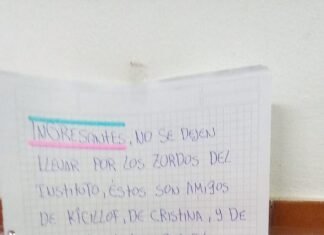 INGRESANTES, NO SE DEJEN
LLEVAR POR LOS ZURDOS DEL
INSTITUTO, ÉSTOS SON AMIGOS
DE KICILLOF, DE CRISTINA, Y DE